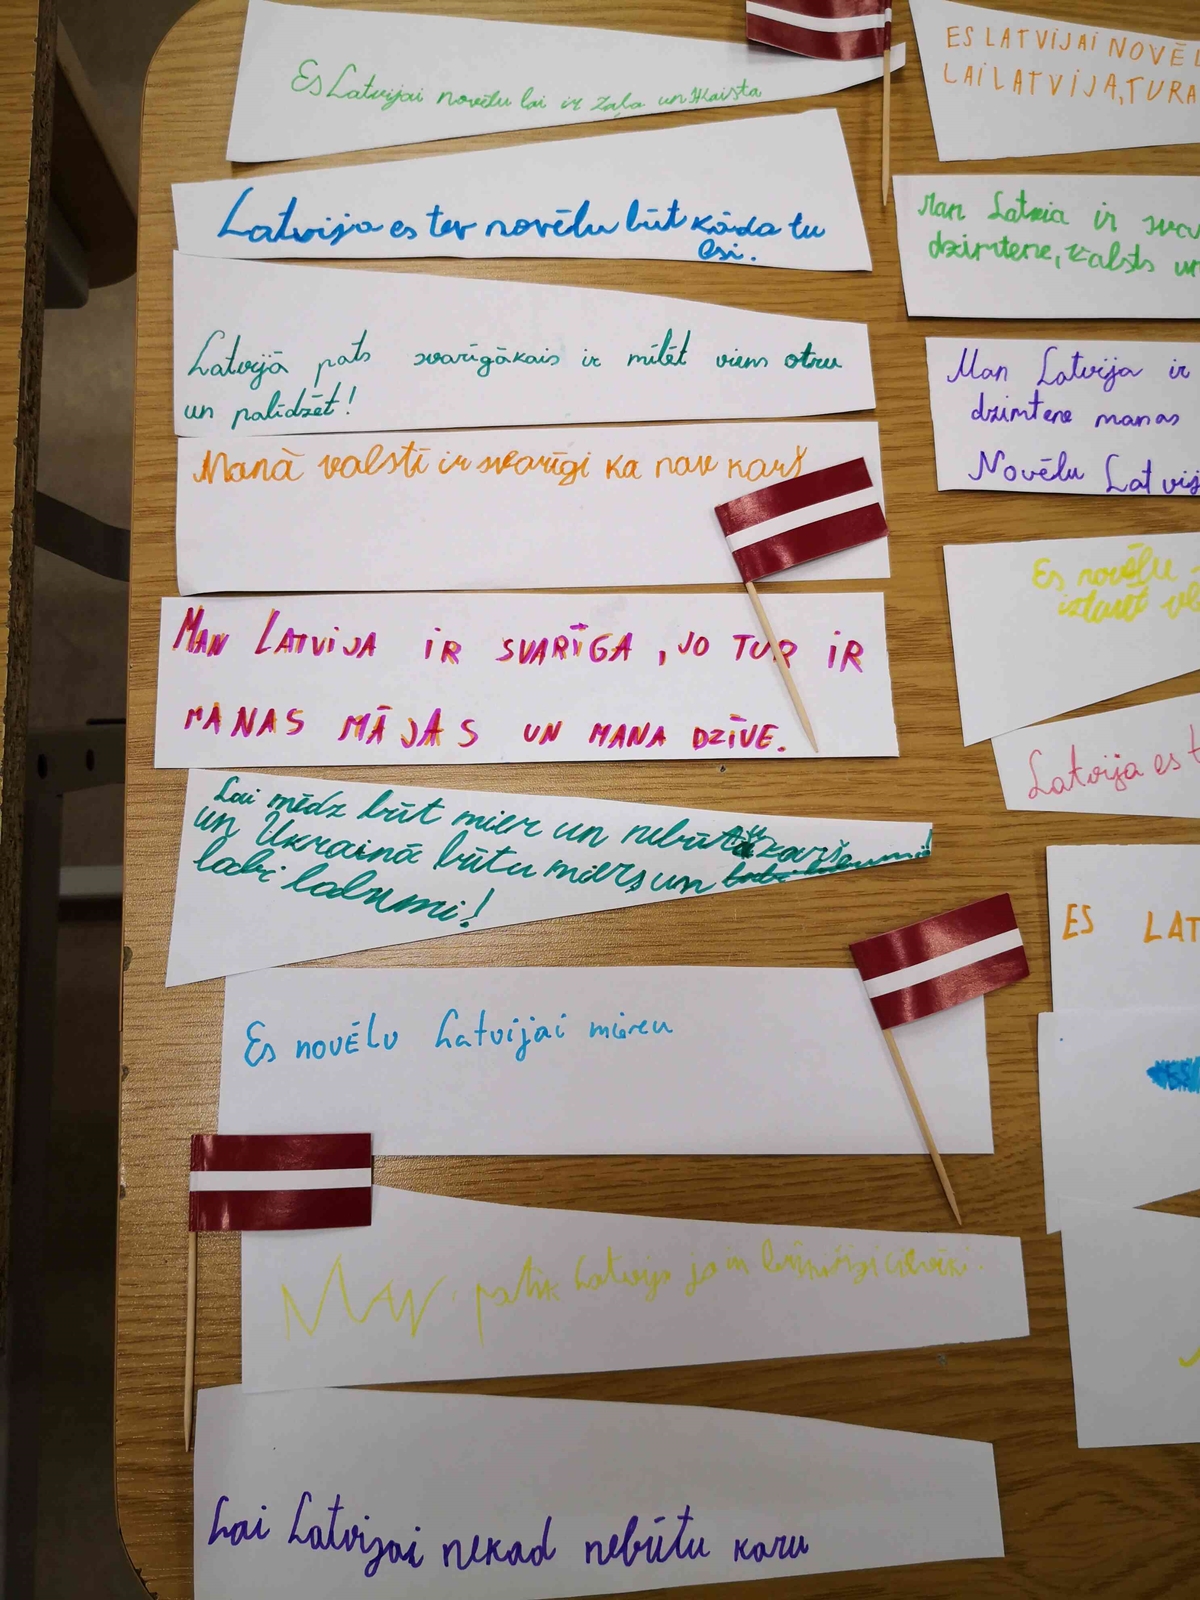 Es Latvijai novēlu lai ir zaļa un skaista
Latvija es tev novēlu būt kāda tu
esi.
Latvijā pats svarīgākais ir mīlēt viens otru
un palīdzēt!
Manā valstī ir svarīgi ka nav karš
MAN LATVIJA IR SVARĪGA, JO TUR IR
MANAS MĀJAS UN MANA DZĪVE.
Lai mēdz būt mier un nebūt karš
un Ukrainā būtu miers un
labi ladumi!
Es novēlu Latvijai mieru
MAN patik Latvija jo ir cilvēki.
Lai Latvijai nekad nebūtu karu
ES LATVIJAI NOVĒL
LAI LATVIJA, TURA
Man Latvia ir svar
dzimtene, valsts un
Man Latvija ir
dzimtene manas
Novēlu Latvij
Es novēlu
izturēt
Latvija es t
ES LAT